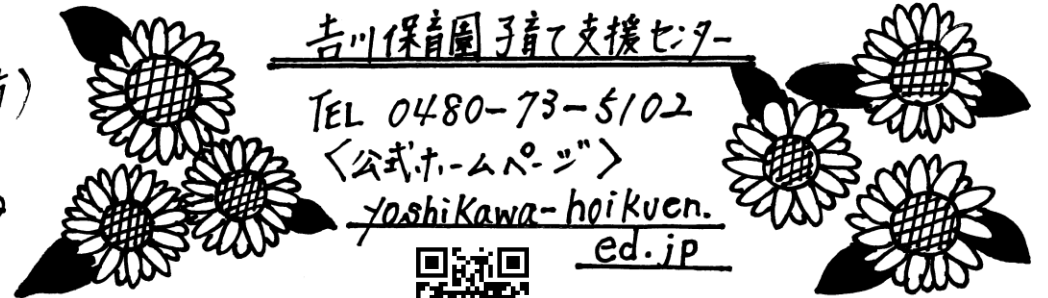 吉川保育園子育て支援センター
TEL 0480-73-5102
〈公式ホームページ〉
yoshikawa-hoikuen.
ed.jp